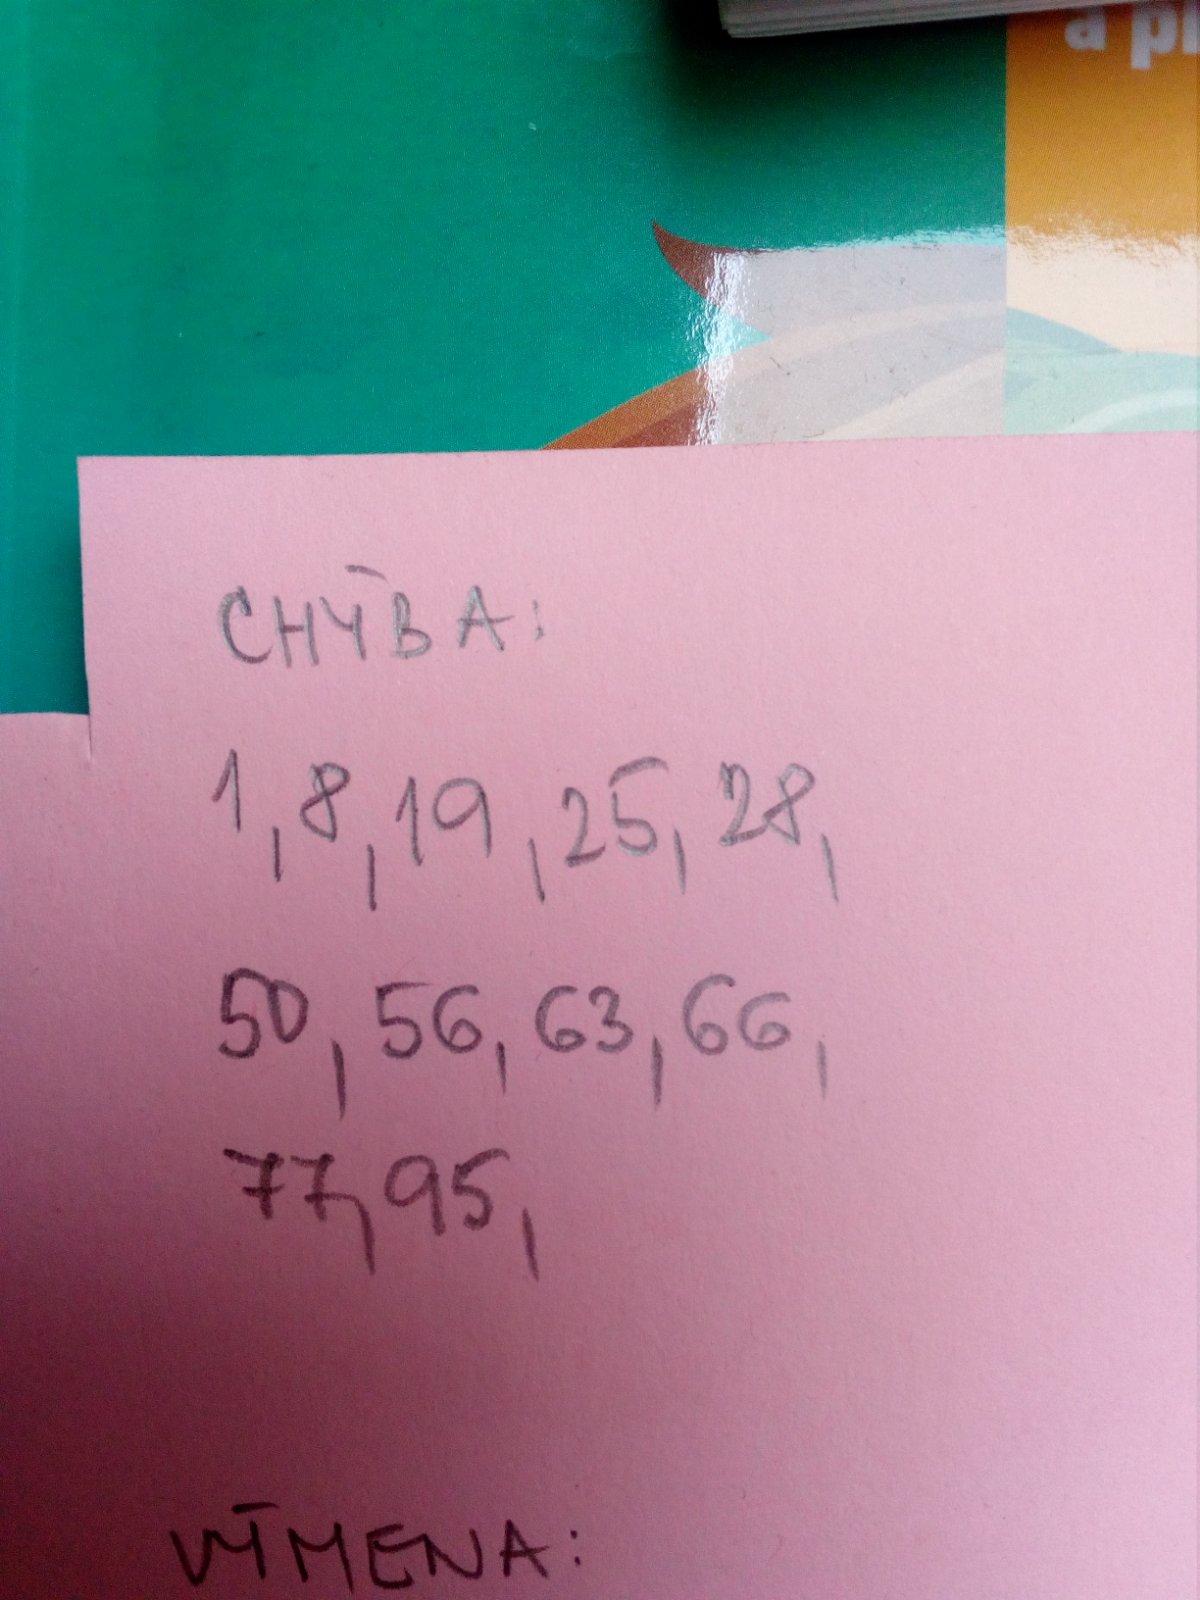 a pl
CHÝBA:
1, 8, 19, 25, 28,
50, 56, 63, 66,
77, 95,
VÝMENA: